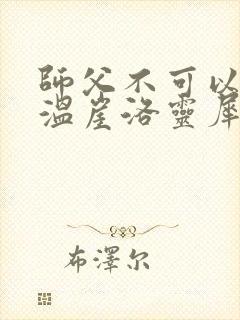 師父不可以
溫崖洛靈犀
布澤尔